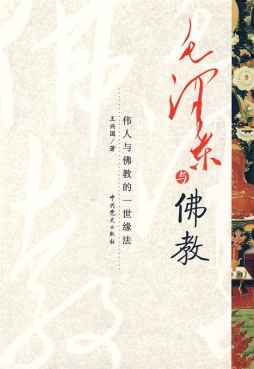 毛泽东
与
佛教
伟人与佛教的一世缘法
王兴国/著
中共党史出版社